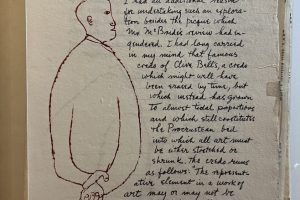 I had an additional reason
for undertaking such an explora-
tion besides the pique which
Mr. McBride's review had en-
gendered. I had long carried
in my mind that famous
credo of Clive Bell's, a credo
which might well have
been erased by time, but
which instead has grown
to almost tidal proportions
and which still constitutes
the Procrustean bed
into which all art must
be either stretched or
shrunk. The credo runs
as follows: "The represent-
ative element in a work of
art may or may not be